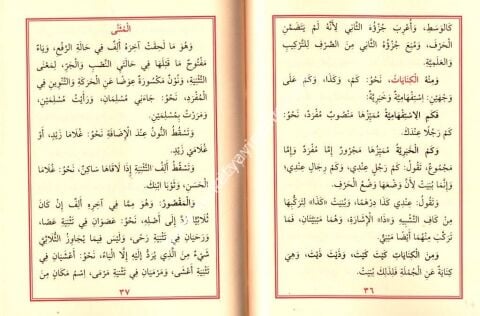 كَالْوَسَطِ، وَأُعْرِبَ جُزْؤُهُ الثَّانِي لِأَنَّهُ لَمْ يَتَضَمَّنِ
الْحَرْفَ، وَمُنِعَ جُزْؤُهُ الثَّانِي مِنَ الصَّرْفِ لِلتَّرْكِيبِ
وَالْعَلَمِيَّةِ.
وَمِنْهُ الْكِنَايَاتُ، نَحْوُ: كَمْ، وَكَذَا، وَكَمْ عَلَى
وَجْهَيْنِ: اِسْتِفْهَامِيَّةٌ وَخَبَرِيَّةٌ:
فَكَمِ الِاسْتِفْهَامِيَّةُ مُمَيِّزُهَا مَنْصُوبٌ مُفْرَدٌ، نَحْوُ:
كَمْ رَجُلًا عِنْدَكَ.
وَكَمِ الْخَبَرِيَّةُ مُمَيِّزُهَا مَجْرُورٌ إِمَّا مُفْرَدٌ وَإِمَّا
مَجْمُوعٌ، تَقُولُ: كَمْ رَجُلٍ عِنْدِي، وَكَمْ رِجَالٍ عِنْدِي،
وَإِنَّمَا بُنِيَتْ لِأَنَّ وَضْعَهَا وَضْعُ الْحَرْفِ.
وَتَقُولُ: عِنْدِي كَذَا دِرْهَمًا، وَبُنِيَتْ «كَذَا» لِتَرَكُّبِهَا
مِنْ كَافِ التَّشْبِيهِ وَ«ذَا» الْإِشَارَةِ، وَهُمَا مَبْنِيَّتَانِ، فَمَا
تَرَكَّبَ مِنْهُمَا أَيْضًا مَبْنِيٌّ.
وَمِنَ الْكِنَايَاتِ كَيْتَ كَيْتَ، وَذَيْتَ، ذَيْتَ، وَهِيَ
كِنَايَةٌ عَنِ الْجُمْلَةِ فَلِذَلِكَ بُنِيَتْ.
٣٦
الْمُثَنَّى
وَهُوَ مَا لَحِقَتْ آخِرَهُ أَلِفٌ فِي حَالَةِ الرَّفْعِ، وَيَاءٌ
مَفْتُوحٌ مَا قَبْلَهَا فِي حَالَتَيِ النَّصْبِ وَالْجَرِّ، لِمَعْنَى
التَّثْنِيَةِ، وَنُونٌ مَكْسُورَةٌ عِوَضًا عَنِ الْحَرَكَةِ وَالتَّنْوِينِ فِي
الْمُفْرَدِ، نَحْوُ: جَاءَنِي مُسْلِمَانِ، وَرَأَيْتُ مُسْلِمَيْنِ،
وَمَرَرْتُ بِمُسْلِمَيْنِ.
وَتَسْقُطُ النُّونُ عِنْدَ الْإِضَافَةِ نَحْوُ: غُلَامَا زَيْدٍ، أَوْ
غُلَامَيْ زَيْدٍ.
وَتَسْقُطُ أَلِفُ التَّثْنِيَةِ إِذَا لَاقَاهَا سَاكِنٌ، نَحْوُ: غُلَامَا
الْحَسَنِ، وَثَوْبَا ابْنِكَ.
وَالْمَقْصُورُ: وَهُوَ مِمَّا فِي آخِرِهِ أَلِفٌ إِنْ كَانَ
ثُلَاثِيًّا رُدَّ إِلَى أَصْلِهِ، نَحْوُ: عَصَوَانِ فِي تَثْنِيَةِ عَصًا،
وَرَحَيَانِ فِي تَثْنِيَةِ رَحًى، وَلَيْسَ فِيمَا يُجَاوِزُ الثُّلَاثِيَّ
شَيْءٌ مِنَ الَّذِي يُرَدُّ إِلَيْهِ إِلَّا الْيَاءُ، نَحْوُ: أَعْشَيَانِ فِي
تَثْنِيَةِ أَعْشَى، وَمَرْمَيَانِ فِي تَثْنِيَةِ مَرْمًى، اِسْمُ مَكَانٍ مِنْ
٣٧